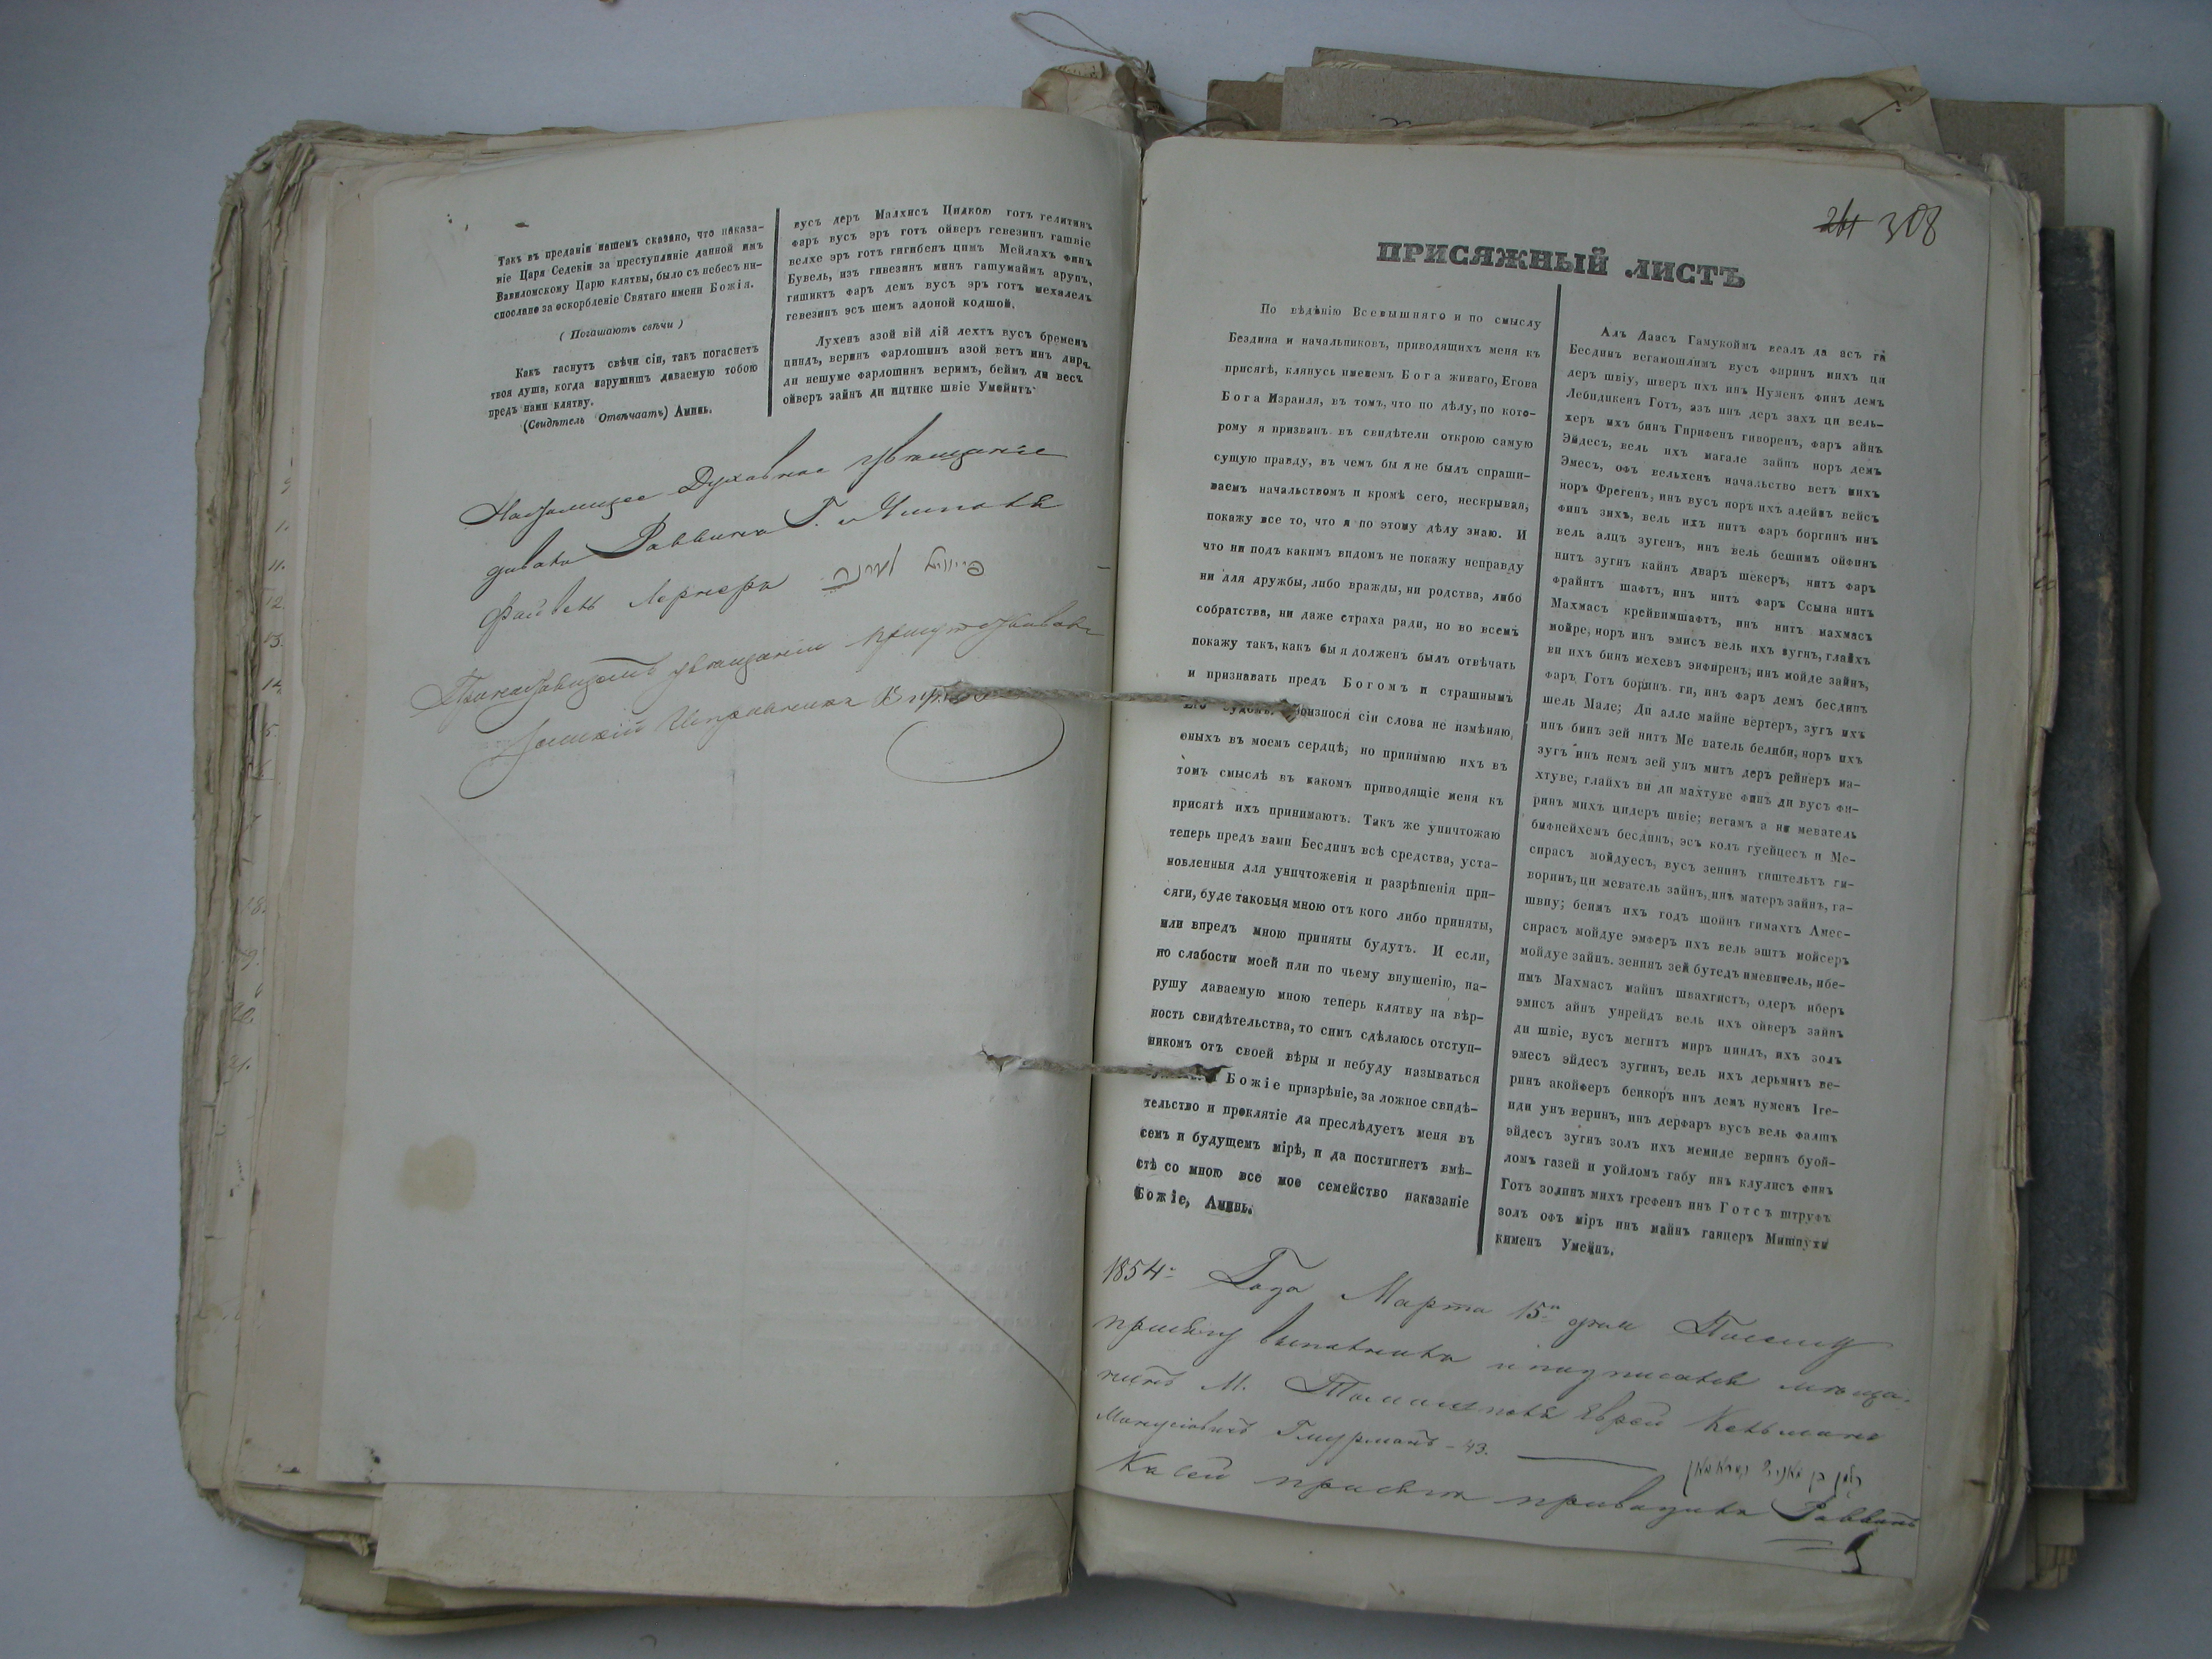 Такъ въ преданіи нашемъ сказано, что наказа-
ніе Царя Седекіи за преступленіе данной имъ
Вавилонскому Царю клятвы, было съ небесъ ни-
спослано за оскорбленіе Святаго имени Божія.
( Погашаютъ свѣчи )
Какъ гаснутъ свѣчи сіи, такъ погаснетъ
твоя душа, когда нарушишъ даваемую тобою
предъ нами клятву.
(Свидѣтель Отвѣчаетъ) Аминь.
вусъ деръ Малхисъ Цидкою готъ гелитинъ
фаръ вусъ эръ готъ ойверъ гевезинъ гашвіе
велхе эръ готъ гигибенъ цимъ Мейлахъ финъ
Бувель, изъ гивезинъ минъ гашумаймъ арупъ,
гишиктъ фаръ демъ вусъ эръ готъ мехалелъ
гевезинъ эсъ шемъ адоной кодшой.
Лухенъ азой вій дій лехтъ вусъ бременъ
циндъ, веринъ фарлошинъ азой ветъ инъ дирч.
ди нешуме фарлошинъ веримъ, беймъ ди весъ
ойверъ зайнъ ди ицтике швіе Умейнъ
Духовное увѣщаніе
Раввинъ Г.
Файвель Лернеръ
увѣщаніи
Исправникъ
308
ПРИСЯЖНЫЙ ЛИСТЪ
По вѣдѣнію Всевышняго и по смыслу
Бездина и начальниковъ, приводящихъ меня къ
присягѣ, клянусь именемъ Бога живаго, Егова
Бога Израиля, въ томъ, что по дѣлу, по кото-
рому я призванъ въ свидѣтели открою самую
сущую правду, въ чемъ бы я не былъ спраши-
ваемъ начальствомъ и кромѣ сего, нескрывая,
покажу все то, что я по этому дѣлу знаю. И
что ни подъ какимъ видомъ не покажу неправду
ни для дружбы, либо вражды, ни родства, либо
собратства, ни даже страха ради, но во всемъ
покажу такъ, какъ бы я долженъ былъ отвѣчать
и признавать предъ Богомъ и страшнымъ
Его судомъ. Произнося сіи слова не измѣняю,
оныхъ въ моемъ сердцѣ, но принимаю ихъ въ
томъ смыслѣ въ какомъ приводящіе меня къ
присягѣ ихъ принимаютъ. Такъ же уничтожаю
теперь предъ вами Бесдинъ всѣ средства, уста-
новленныя для уничтоженія и разрѣшенія при-
сяги, буде таковыя мною отъ кого либо приняты,
или впредъ мною приняты будутъ. И если,
по слабости моей или по чьему внушенію, на-
рушу даваемую мною теперь клятву на вѣр-
ность свидѣтельства, то симъ сдѣлаюсь отступ-
никомъ отъ своей вѣры и небуду называться
Божіе призрѣніе, за ложное свидѣ-
тельство и проклятіе да преслѣдуетъ меня въ
семъ и будущемъ мірѣ, и да постигнетъ вмѣ-
стѣ со мною все мое семейство наказаніе
Божіе, Аминь.
Алъ Даасъ Гамукоймъ веалъ да асъ га
Бесдинъ вегамошлимъ вусъ фиринъ михъ ци
деръ швіу, шверъ ихъ инъ Нуменъ финъ демъ
Лебидикенъ Готъ, азъ инъ деръ захъ ци вель-
херъ ихъ бинъ Гирифенъ гиворенъ, фаръ айнъ
Эйдесъ, вель ихъ магале зайнъ норъ демъ
Эмесъ, офъ вельхенъ начальство ветъ михъ
норъ Фрегенъ, инъ вусъ норъ ихъ алейнъ вейсъ
финъ зихъ, вель ихъ нитъ фаръ боргинъ инъ
вель алцъ зугенъ, инъ вель бешимъ ойфинъ
нитъ зугнъ кайнъ дваръ шекеръ, нитъ фаръ
фрайнтъ шафтъ, инъ нитъ фаръ Ссына нитъ
Махмасъ крейвимшафтъ, инъ нитъ махмасъ
мойре, норъ инъ эмисъ вель ихъ зугнъ, глайхъ
ви ихъ бинъ мехевъ энфиренъ, инъ мойде зайнъ,
фаръ Готъ боринъ ги, инъ фаръ демъ бесдинъ
шель Мале; Ди алле майне вертеръ, зугъ ихъ
инъ бинъ зей нитъ Ме ватель белиби, норъ ихъ
зугъ инъ немъ зей унъ митъ деръ рейнеръ ма-
хтуве, глайхъ ви ди махтуве финъ ди вусъ фи-
ринъ михъ цидеръ швіе; вегамъ а ни меватель
бифнейхемъ бесдинъ, эсъ колъ гуейцесъ и Ме-
сирасъ мойдуесъ, вусъ зенинъ гиштельтъ ги-
воринъ, ци меватель зайнъ, инъ матеръ зайнъ, га-
швиу; беимъ ихъ годъ шойнъ гимахтъ Амес-
сирасъ мойдуе эмферъ ихъ вель эштъ мойсеръ
мойдуе зайнъ. зенинъ зей бутедъ имевитель, ибе-
имъ Махмасъ майнъ швахгистъ, одеръ иберъ
эмисъ айнъ унрейдъ вель ихъ ойверъ зайнъ
ди швіе, вусъ мегитъ миръ циндъ, ихъ золъ
эмесъ эйдесъ зугинъ, вель ихъ дермитъ ве-
ринъ акойферъ бенкоръ инъ демъ нуменъ Іге-
иди унъ веринъ, инъ дерфаръ вусъ вель фалшъ
эйдесъ зугнъ золъ ихъ мемиле веринъ буой-
ломъ газей и уойломъ габу инъ клулисъ финъ
Готъ золинъ михъ грефенъ инъ Готсъ штруфъ
золъ офъ міръ инъ майнъ ганцеръ Мишпухи
кименъ Умейнъ.
1854 Года Марта 15 дня
присягу выполнилъ и подписался мѣща-
нинъ М. Томашполя Еврей Кельманъ
43.
Къ сей присягѣ приводилъ Раввинъ